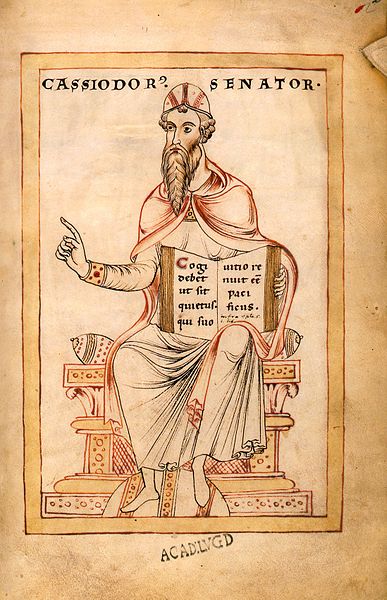 CASSIODOR⁹. SENATOR·
Cogi
debet
ut sit
quietus.
qui suo
uitio re
nuit eē
paci
ficus.
ACAD.LVGD